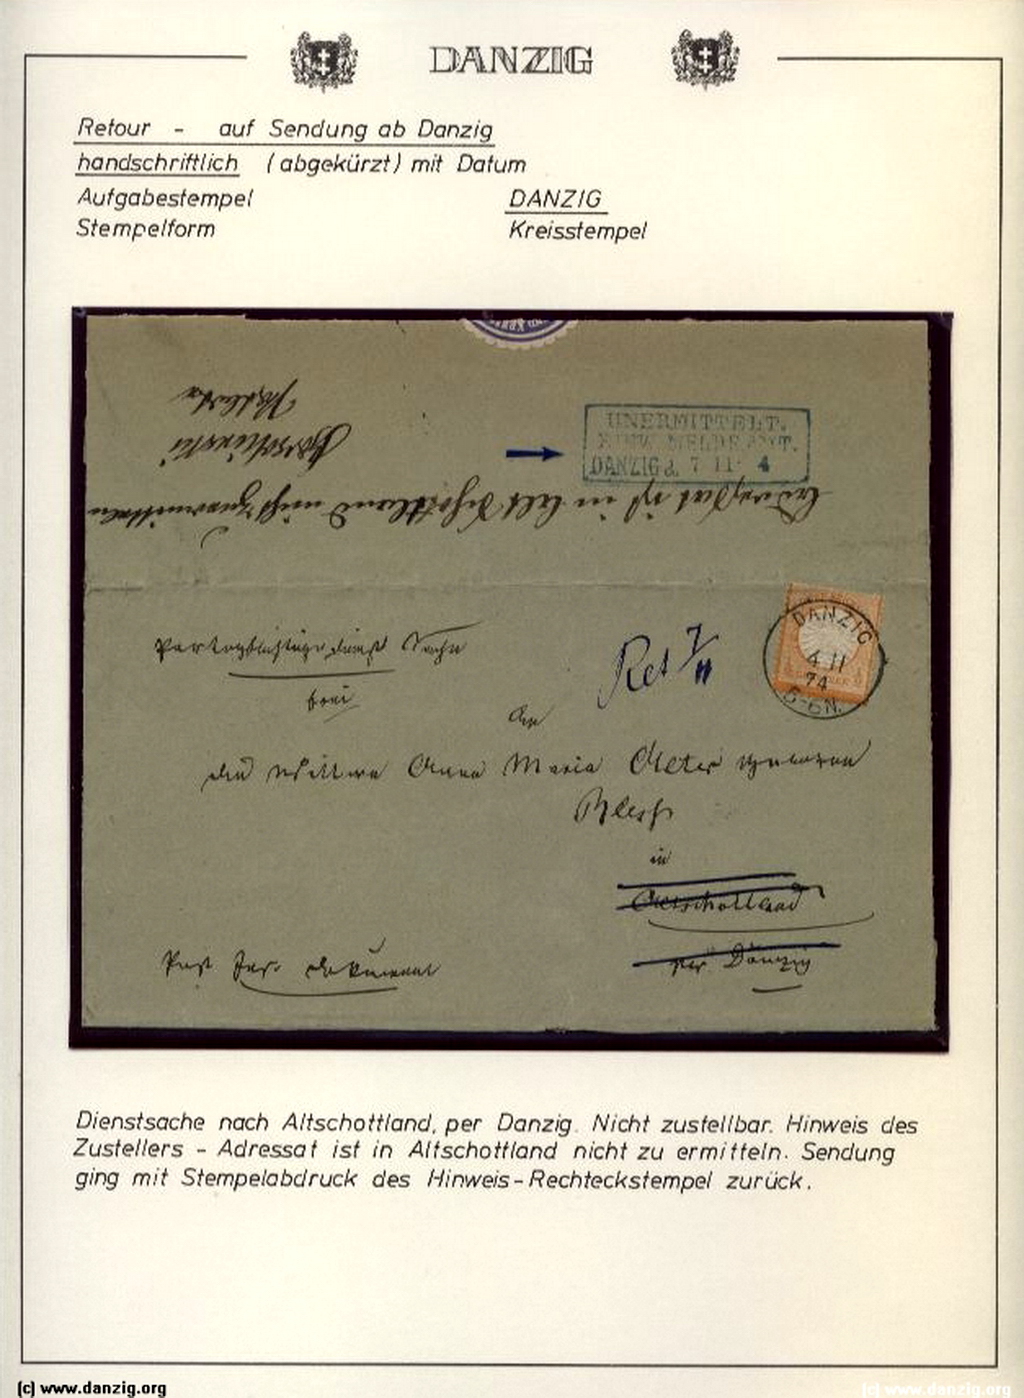 DANZIG
Retour - auf Sendung ab Danzig
handschriftlich (abgekürzt) mit Datum
Aufgabestempel DANZIG
Stempelform Kreisstempel
UNERMITTELT.
EINW. MELDE AMT.
DANZIG d. 7 11 4
Adressat ist in Alt Schottland nicht zu ermitteln
DANZIG
4 11
74
5-6N.
Portopflichtige Dienst Sache
frei
Ret 7/11
An
die Wittwe Anna Maria
in
Altschottland
per Danzig
Dienstsache nach Altschottland, per Danzig. Nicht zustellbar. Hinweis des
Zustellers - Adressat ist in Altschottland nicht zu ermitteln. Sendung
ging mit Stempelabdruck des Hinweis-Rechteckstempel zurück.
(c) www.danzig.org
(c) www.danzig.org